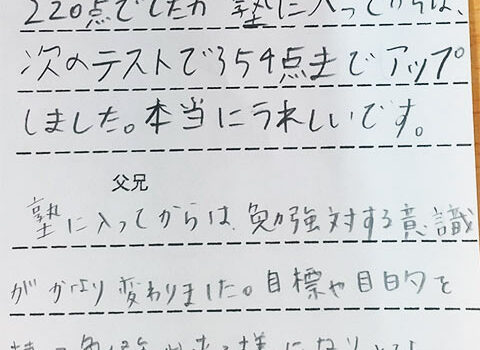 220点でしたが 塾に入ってからは、
次のテストで354点までアップ
しました。本当にうれしいです。
父兄
塾に入ってからは、勉強対する意識
がかなり変わりました。目標や目的を